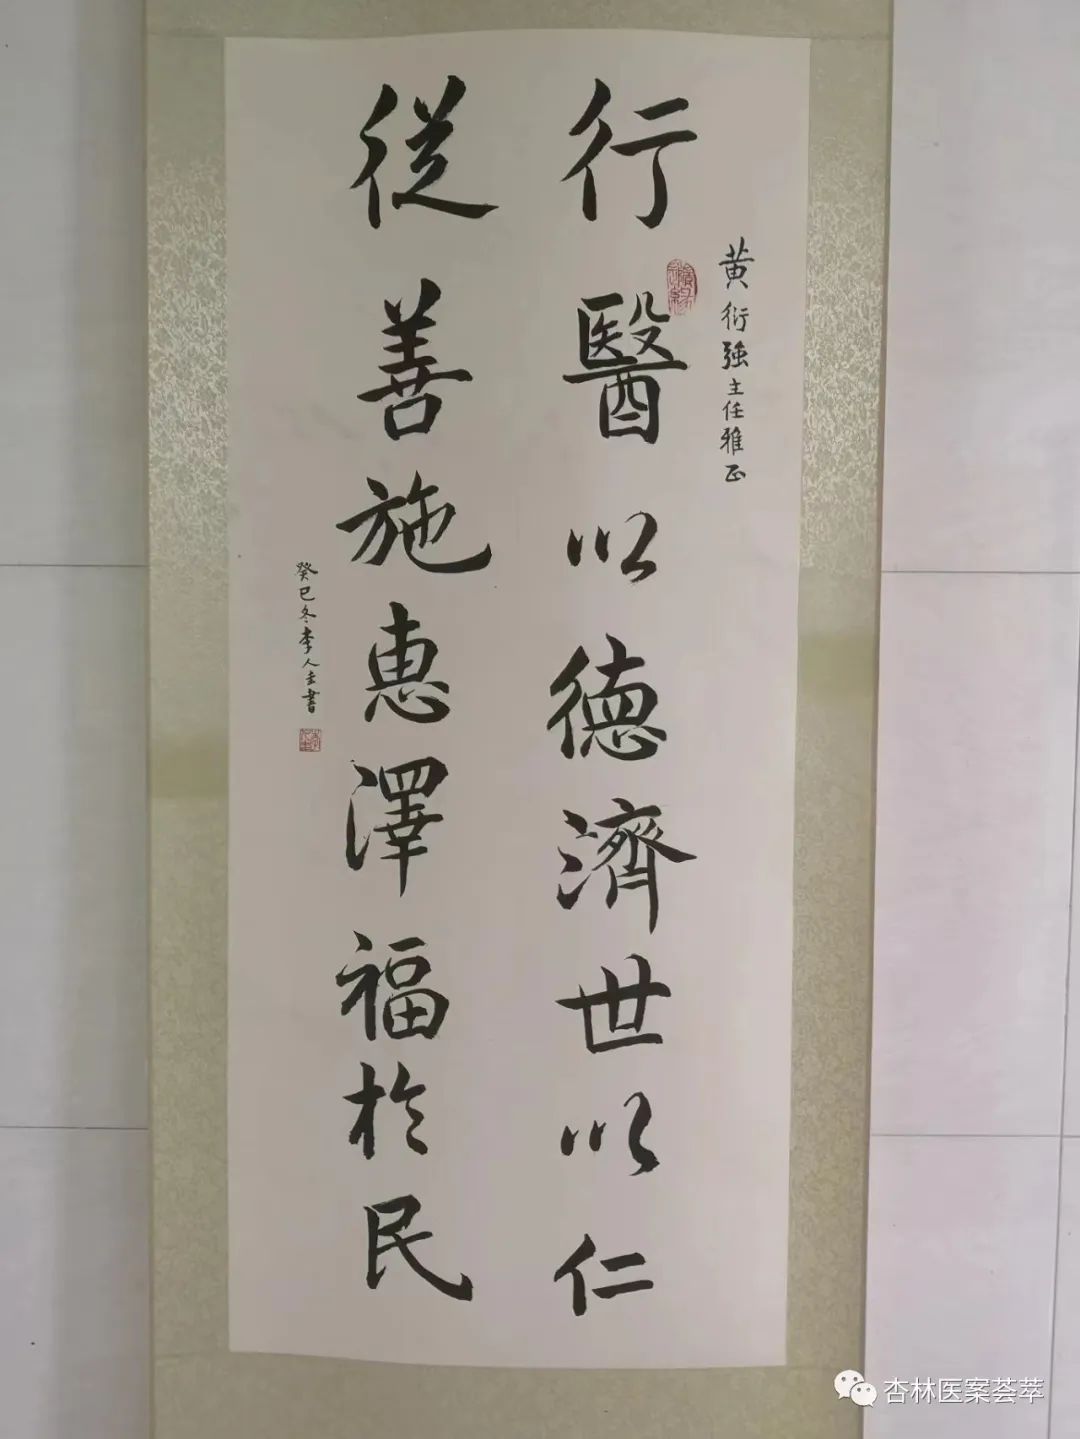 黄衍強主任雅正
行醫以德濟世以仁
從善施惠澤福於民
癸巳冬李人主書
杏林医案荟萃